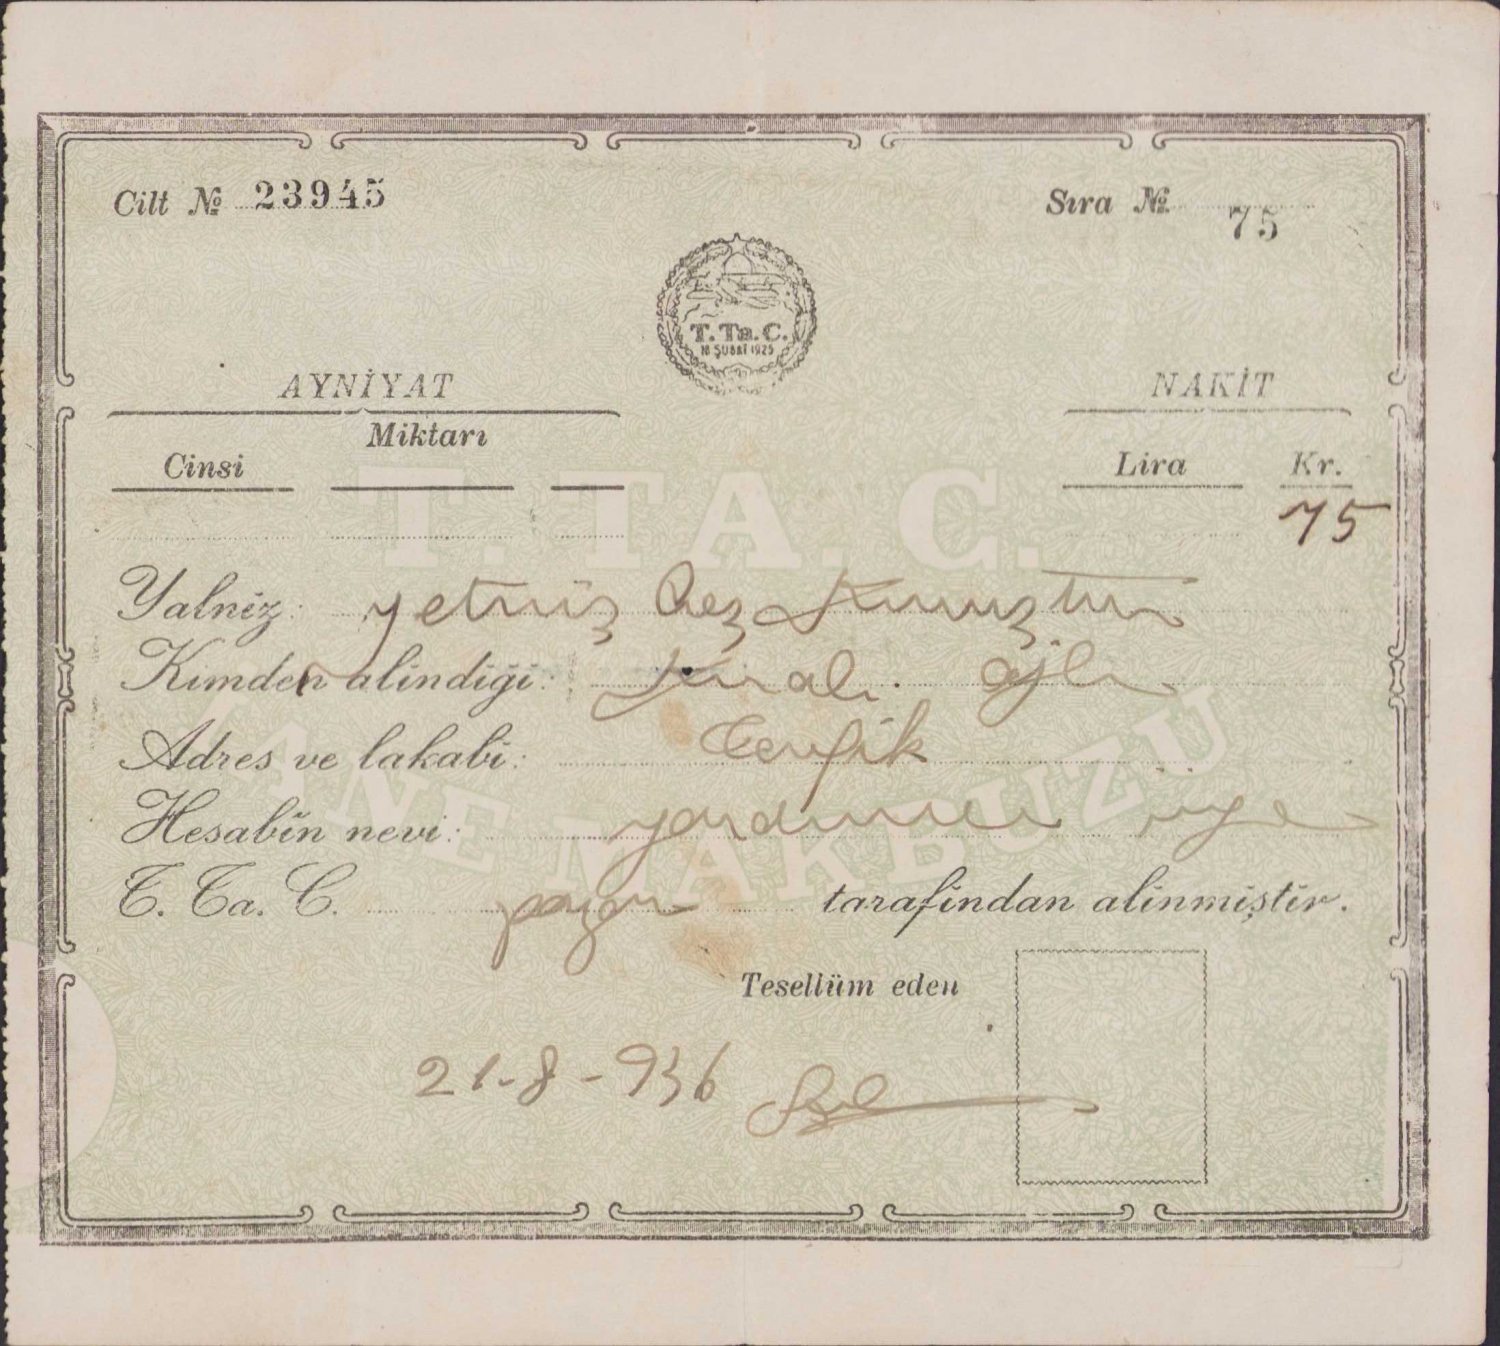 Cilt № 23945
Sıra № 75
T. Ta. C.
16 ŞUBAT 1925
AYNİYAT
NAKİT
Miktarı
Cinsi
Lira Kr.
75
T. TA. C.
Yalnız: yetmiş beş kuruştur
Kimden alındığı: Kıralı oğlı
Adres ve lakabı: Tevfik
Hesabın nevi: yardımcı üye
İANE MAKBUZU
T. Ta. C. pazar tarafından alınmıştır.
Tesellüm eden
21-8-936